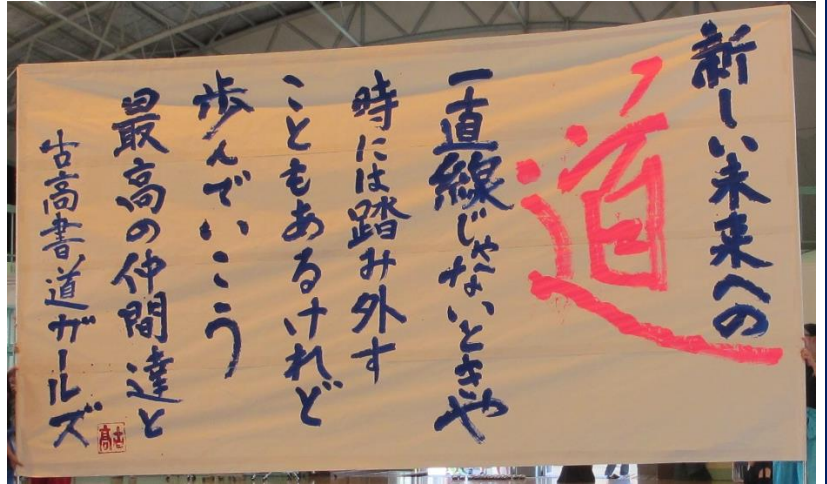 新しい未来への
道
一直線じゃないときや
時には踏み外す
こともあるけれど
歩んでいこう
最高の仲間達と
古高書道ガールズ
古高